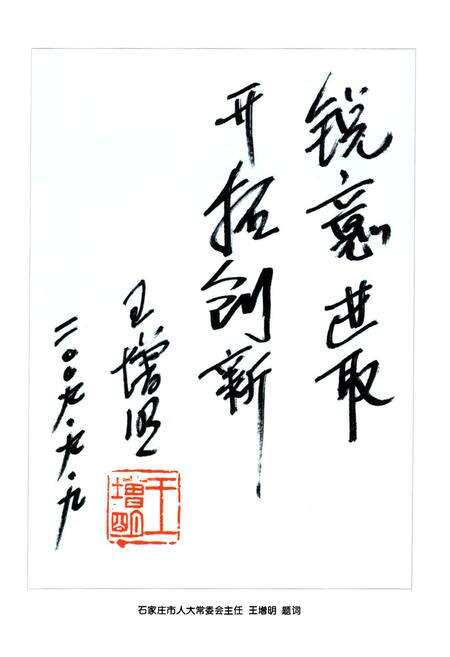 锐意进取
开拓创新
王增明
二〇〇九.九.九
王增明
石家庄市人大常委会主任 王增明 题词